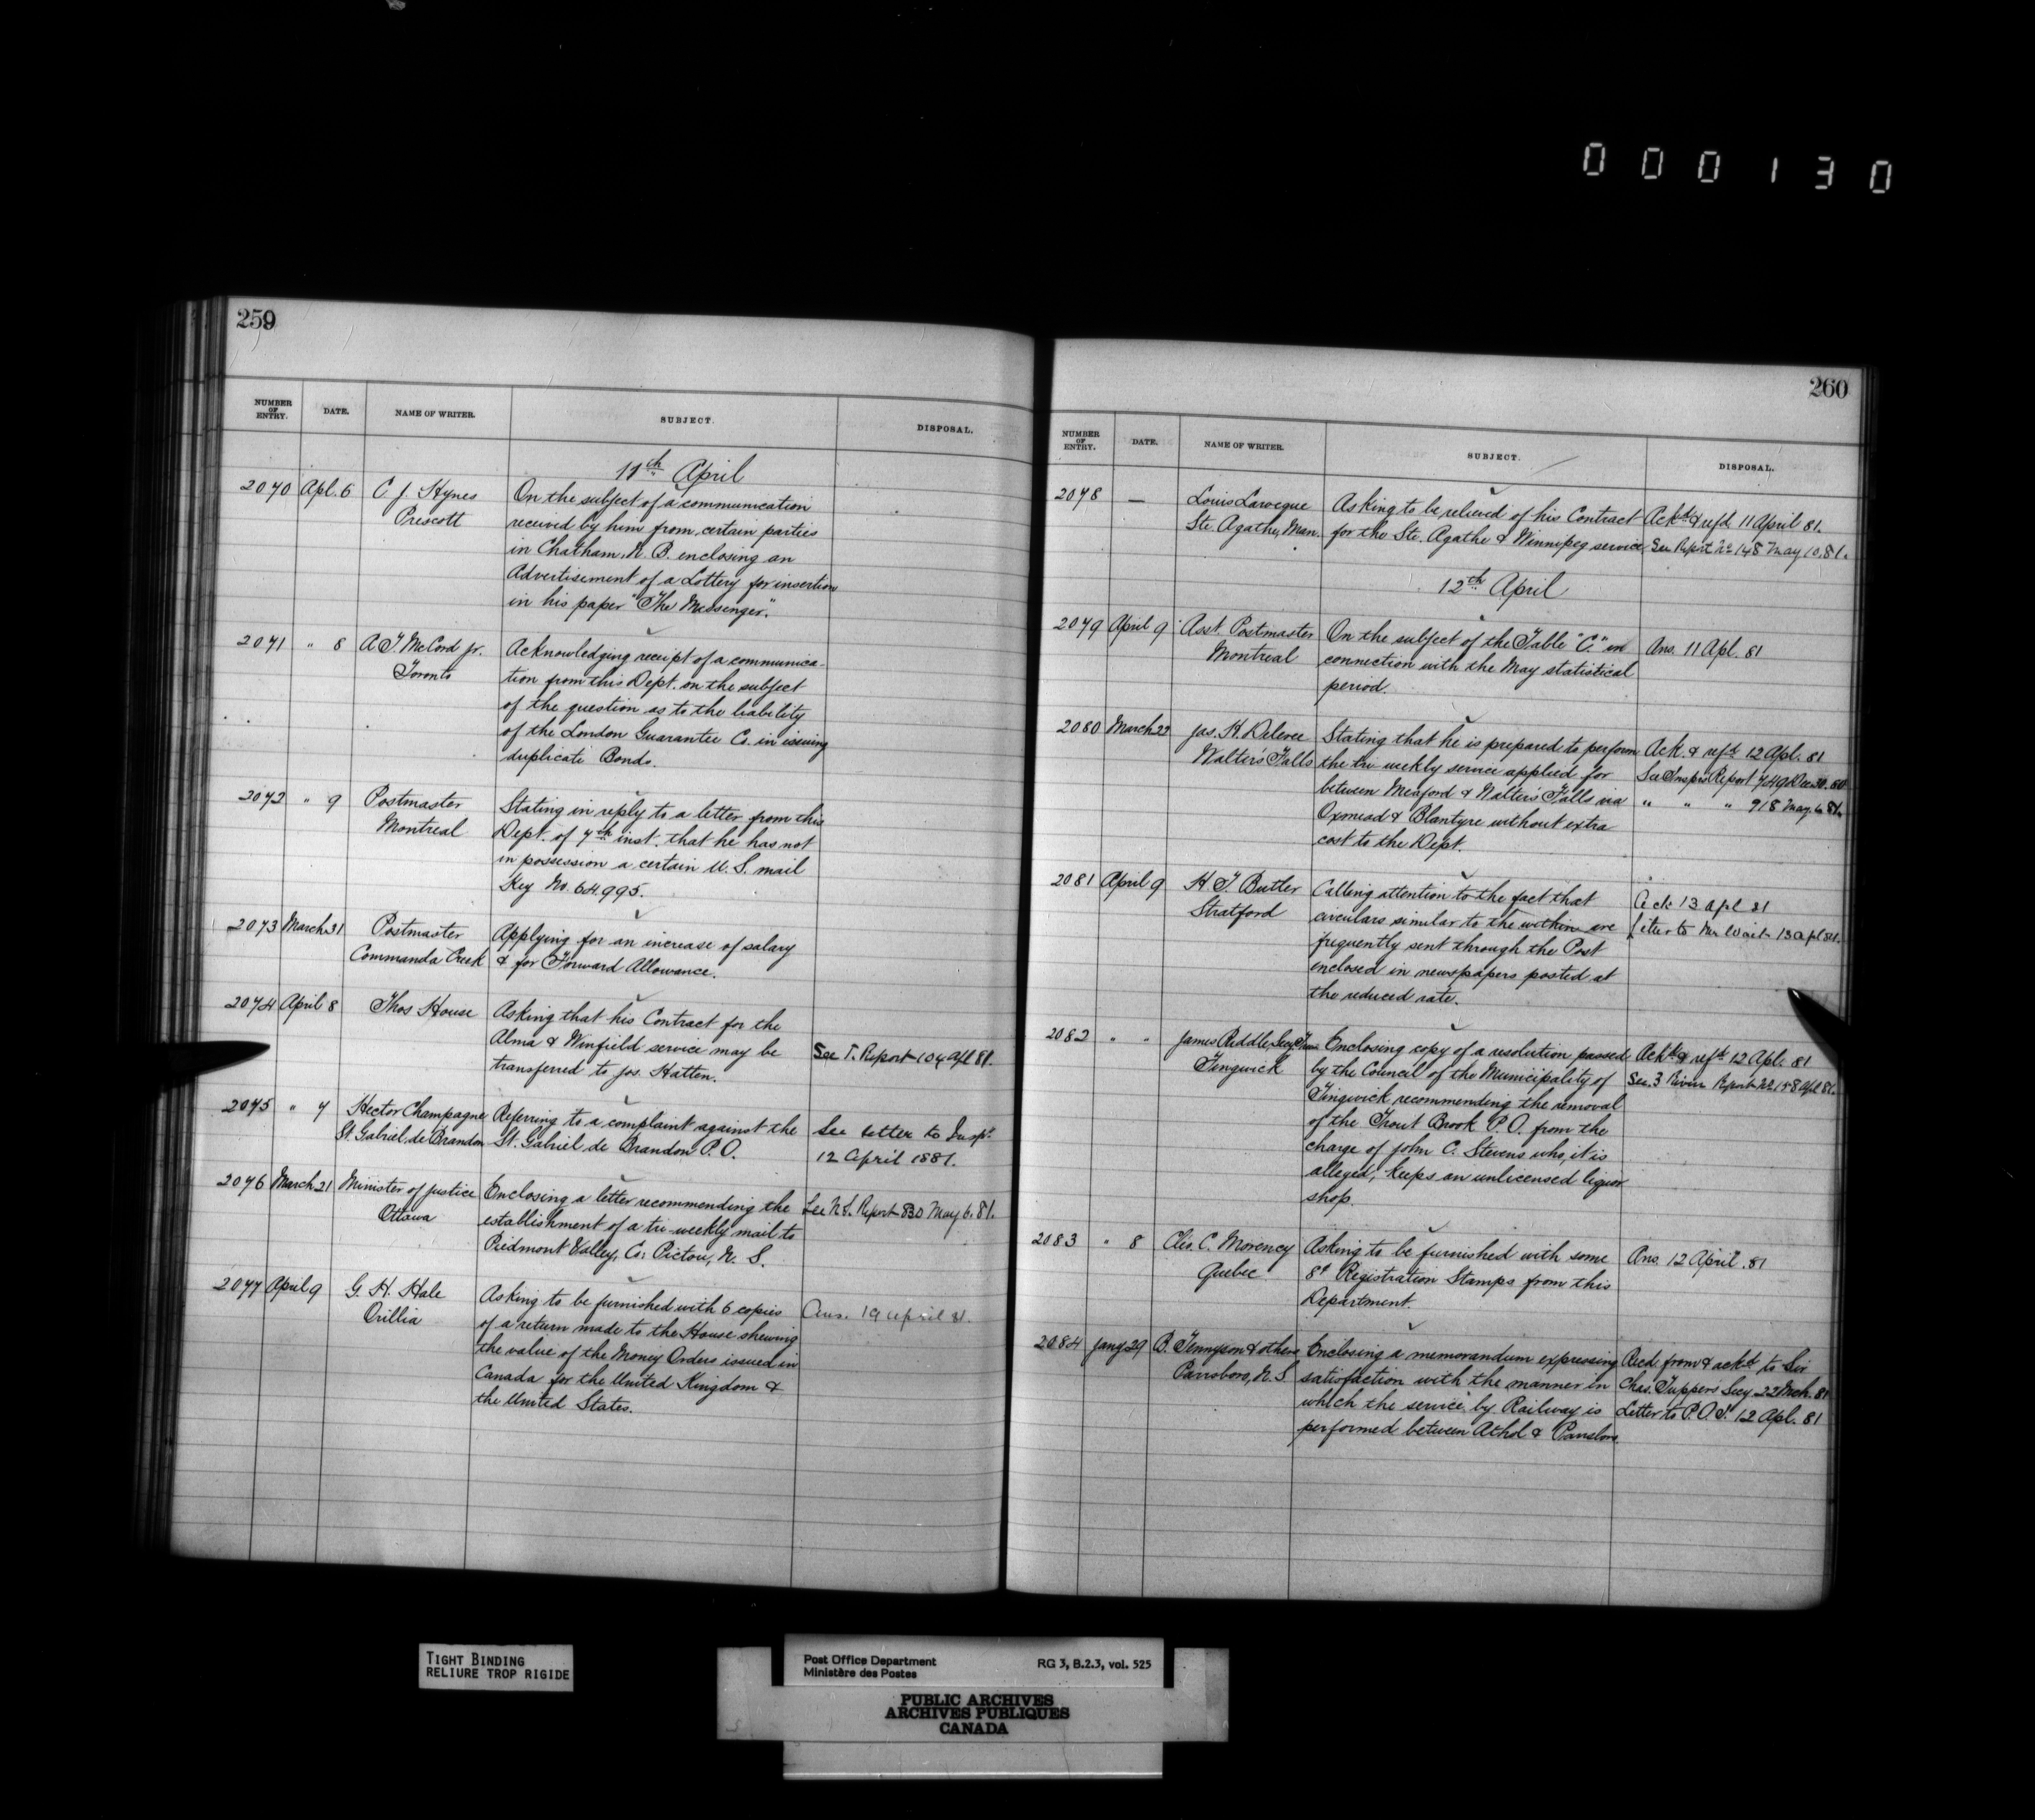 000130
259
NUMBER OF ENTRY. DATE. NAME OF WRITER. SUBJECT. DISPOSAL.
11th April
2070 Apl. 6 C. J. Hynes On the subject of a communication
Prescott received by him from certain parties
in Chatham, N. B. enclosing an
Advertisement of a Lottery for insertion
in his paper "The Messenger".
2071 " 8 A. T. McCord jr. Acknowledging receipt of a communica-
Toronto tion from this Dept. on the subject
of the question as to the liability
of the London Guarantee Co. in issuing
duplicate Bonds.
2072 " 9 Postmaster Stating in reply to a letter from this
Montreal Dept. of 7th inst. that he has not
in possession a certain U. S. mail
Key No. 64995.
2073 March 31 Postmaster Applying for an increase of salary
Commanda Creek & for Forward Allowance.
2074 April 8 Thos House Asking that his Contract for the
Alma & Winfield service may be See T. Report 104 Apl 81.
transferred to Jos. Hatten.
2075 " 7 Hector Champagne Referring to a complaint against the See letter to Inspr
St. Gabriel de Brandon St. Gabriel de Brandon P. O. 12 April 1881.
2076 March 21 Minister of Justice Enclosing a letter recommending the See N.S. Report 830 May 6. 81.
Ottawa establishment of a tri-weekly mail to
Piedmont Valley, Co. Pictou, N. S.
2077 April 9 G. H. Hale Asking to be furnished with 6 copies Ans. 19 April 81.
Orillia of a return made to the House shewing
the value of the Money Orders issued in
Canada for the United Kingdom &
the United States.
260
NUMBER OF ENTRY. DATE. NAME OF WRITER. SUBJECT. DISPOSAL.
2078 — Louis Larocque Asking to be relieved of his Contract Ackd & refd 11 April 81.
Ste. Agathe, Man. for the Ste. Agathe & Winnipeg service See Report No 148 May 10. 81.
12th April
2079 April 9 Asst. Postmaster On the subject of the Table "C." in Ans. 11 Apl. 81
Montreal connection with the May statistical
period.
2080 March 22 Jas. H. Stating that he is prepared to perform Ack. & refd 12 Apl. 81
Walter's Falls the tri weekly service applied for See Insprs Report 749 Dec 30. 80
between Meaford & Walter's Falls via " " " 918 May 6 81.
Oxmead & Blantyre without extra
cost to the Dept.
2081 April 9 H. T. Butler Calling attention to the fact that Ack 13 Apl 81
Stratford circulars similar to the within are Letter to Mr 13 Apl 81.
frequently sent through the Post
enclosed in newspapers posted at
the reduced rate.
2082 " " James Riddle, Secy Treas Enclosing copy of a resolution passed Ackd & refd 12 Apl. 81
Tingwick by the Council of the Municipality of See 3 Rivers Report No 158 Apl 81.
Tingwick recommending the removal
of the Trout Brook P. O. from the
charge of John C. Stevens who, it is
alleged, keeps an unlicensed liquor
shop.
2083 " 8 Cleo. C. Morency Asking to be furnished with some Ans. 12 April. 81
Quebec 8¢ Registration Stamps from this
Department.
2084 Jany 29 B. Tennyson & others Enclosing a memorandum expressing Recd. from & ackd to Sir
Parrsboro, N. S satisfaction with the manner in Chas. Tupper's Secy 22 Mch. 81
which the service by Railway is Letter to P. O. I. 12 Apl. 81
performed between Athol & Parrsboro
TIGHT BINDING
RELIURE TROP RIGIDE
Post Office Department RG 3, B.2.3, vol. 525
Ministère des Postes
PUBLIC ARCHIVES
ARCHIVES PUBLIQUES
CANADA